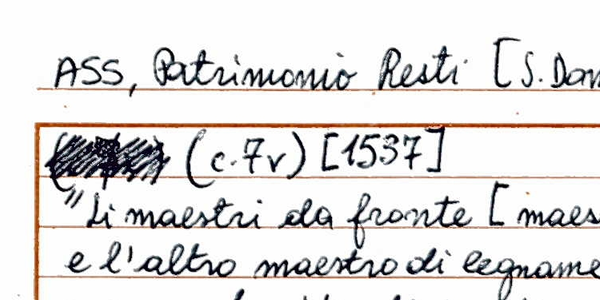 ASS, Patrimonio Resti [S.
(c.7v) [1537]
"Li maestri da fronte [
e l'altro maestro di legname